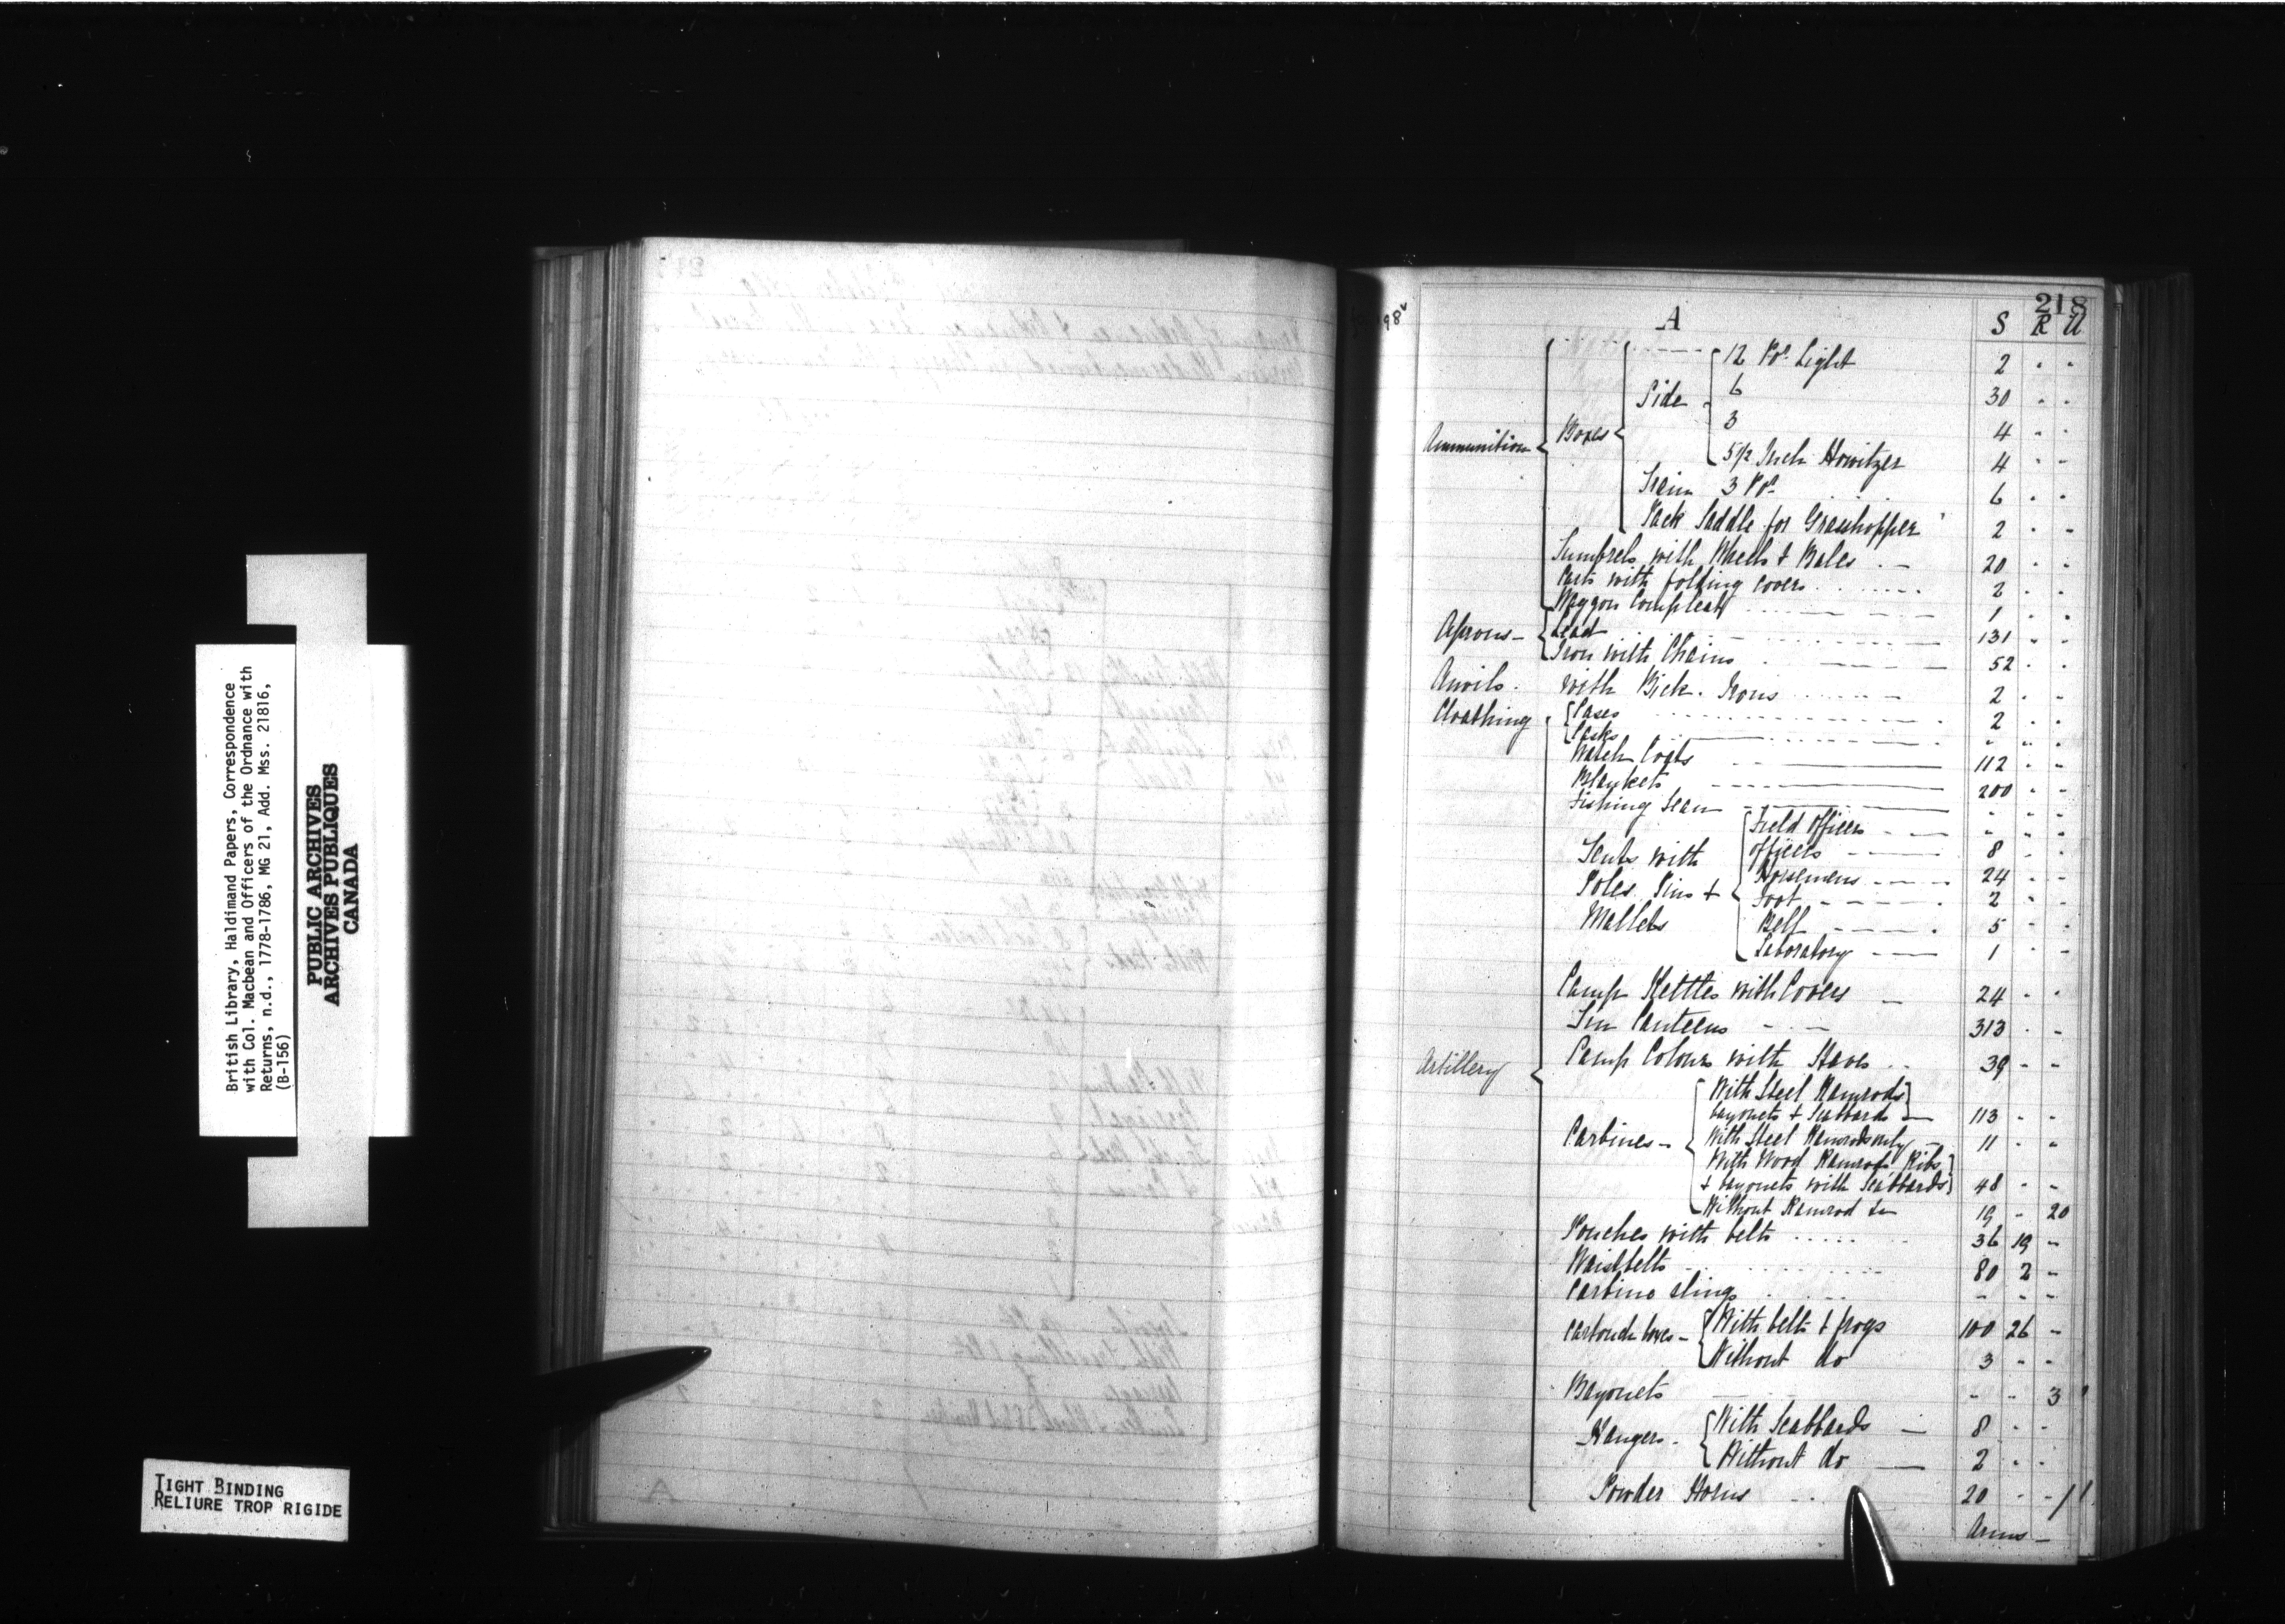 British Library, Haldimand Papers, Correspondence
with Col. Macbean and Officers of the Ordnance with
Returns, n.d., 1778-1786, MG 21, Add. Mss. 21816,
(B-156)
PUBLIC ARCHIVES
ARCHIVES PUBLIQUES
CANADA
TIGHT BINDING
RELIURE TROP RIGIDE
98
218
A S R U
12 Pdr Light 2 " "
Side 6 30 " "
3 4 " "
Ammunition Boxes
5 1/2 Inch Howitzer 4 " "
3 Pdr 6 " "
Pack Saddle for Grasshopper 2 " "
Tumbrels with Wheels & Bales 20 " "
Carts with folding covers 2 " "
Waggon Compleat 1 " "
Aprons - Lead 131 " "
Iron with Chains 52 " "
Anvils. with Bick. Irons 2 " "
Cloathing Cases 2 " "
Casks " " "
Watch Coats 112 " "
Blankets 200 " "
Fishing Sean " " "
Field Officers " " "
Tents with Officers 8 " "
Poles, Pins & Horsemens 24 " "
Foot 2 " "
Mallets Bell 5 " "
Laboratory 1 " "
Camp Kettles with Covers 24 " "
Tin Canteens 313 " "
Artillery
Camp Colours with Staves 39 " "
With Steel Ramrods
bayonets & Scabbards 113 " "
Carbines - With Steel Ramrods only 11 " "
With Wood Ramrods, Ribs
& bayonets with Scabbards 48 " "
Without Ramrod 19 " 20
Pouches with belts 36 19 "
Waistbelts 80 2 "
Carbine slings - - -
Cartouch boxes - With belts & frogs 100 26 -
Without do 3 - -
Bayonets - - 3
Hangers - With Scabbards 8 - -
Without do 2 - -
Powder Horns 20 - -
Arms -